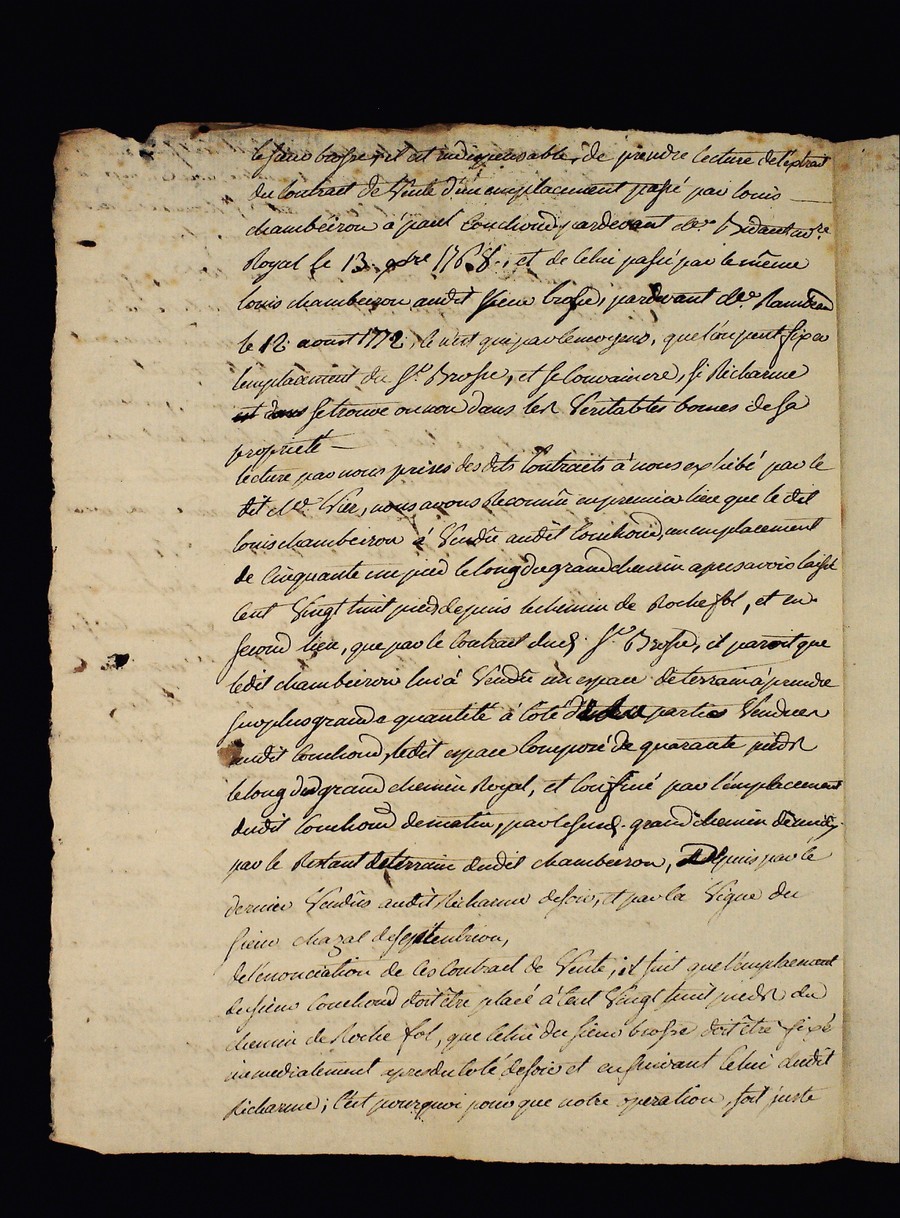 le sieur brosse, il est indispensable, de prendre lecture de l'extrait
du Contrait de Vente d'un emplacement passé par louis
chambeiron à paul Couchoud pardevant Me. Bidaut nre.
Royal le 13. 9bre 1768., et de Celui passé par le même
louis chambeiron audit sieur brosse, pardevant Me.
le 12 aoust 1772, Ce n'est que par le moyens, que l'on peut fixer
l'emplacement du Sr. Brosse, et se Convaincre, si Richarme
se trouve ou non dans les Veritables bornes de sa
proprieté
lecture par nous prises desdits Contraits à nous exhibé par le
dit Me. Vier, nous avons Reconnu en premier lieu que le dit
louis chambeiron à Vendu audit Couchoud, un emplacement
de Cinquante un pied le long du grand chemin apres avois laissé
Cent Vingt huit pied depuis le chemin de Rochefol, et en
second lieu, que par le Contrait dud. Sr. Brosse, il paroit que
ledit chambeiron lui à Vendu un espace de terrain à prendre
sur plus grande quantité à Coté parties Vendues
audit Couchoud, ledit espace Composé de quarante pieds
le long du grand chemin Royal, et Confiné par l'emplacement
dudit Couchoud de matin, par le susd. grand chemin de midy.
par le Restant de terrain dudit chambeiron, Depuis par Ce
dernier Vendus audit Richarme de soir, et par la Vigne du
sieur chazal de septentrion,
de l'enonciation de Ces Contrait de Vente, il suit que l'emplacement
du sieur Couchoud doit être placé à Cent Vingt huit pieds du
chemin de Roche fol, que Celui du sieur brosse doit être fixé
immediatement apres du Coté de soir et en suivant Celui dudit
Richarme; C'est pourquoi pour que notre operation, soit juste